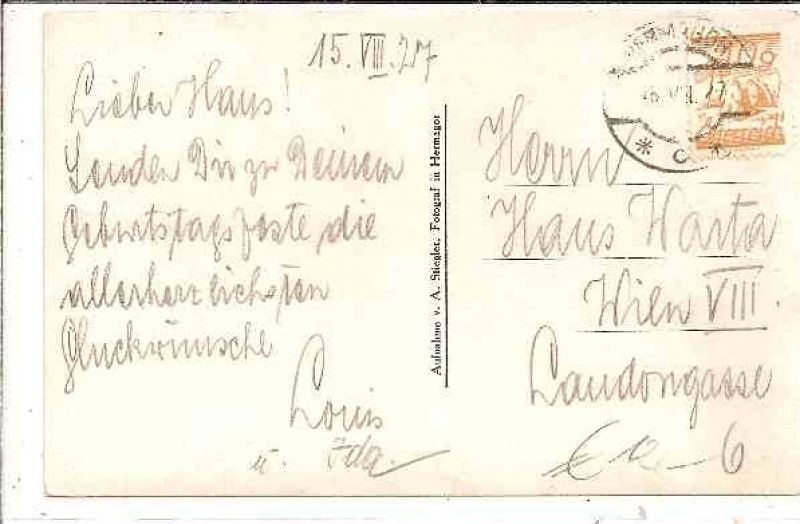 15. VIII. 27
Lieber Hans!
Senden Dir zu Deinem
Geburtstagsfeste, die
allerherzlichsten
Glückwünsche
Louis
u. Ida.
Aufnahme v. A. Stiegler, Fotograf in Hermagor
Herrn
Hans Warta
Wien VIII.
Laudongasse
6